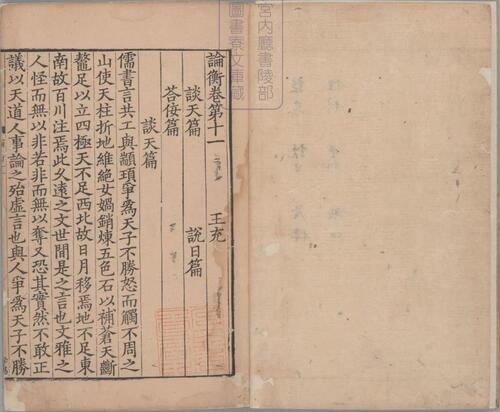 論衡卷第十一
王充
談天篇
說日篇
荅佞篇
談天篇
儒書言共工與顓頊爭爲天子不勝怒而觸不周之
山使天柱折地維絶女媧銷煉五色石以補蒼天斷
鼇足以立四極天不足西北故日月移焉地不足東
南故百川注焉此久遠之文世間是之言也文雅之
人怪而無以非若非而無以奪又恐其實然不敢正
議以天道人事論之殆虛言也與人爭爲天子不勝
宮内廳書陵部
圖書寮文庫藏